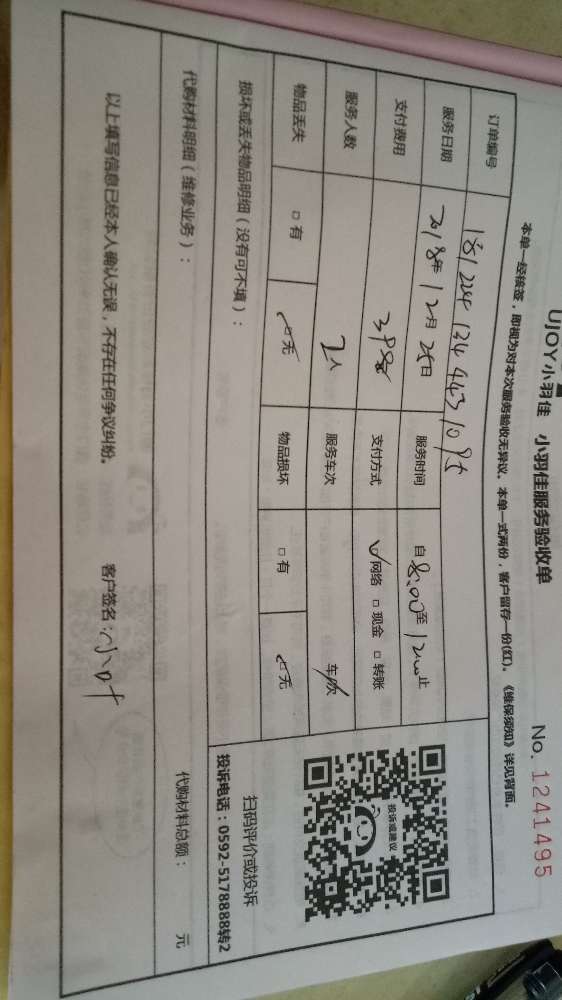 UJOY小羽佳 小羽佳服务验收单 No. 1241495
本单一经核签，即视为对本次服务验收无异议。本单一式两份，客户留存一份(红)。《维保须知》详见背面。
订单编号 181224134443109
服务日期 2018年12月25日 服务时间 自8:00至12:00止
支付费用 398 支付方式 ✓网络 □现金 □转账
服务人数 2人 服务车次 车/次
物品丢失 □有 ☑无 物品损坏 □有 ☑无
投诉或建议
扫码评价或投诉
投诉电话：0592-5178888转2
损坏或丢失物品明细（没有可不填）：
代购材料明细（维修业务）： 代购材料总额： 元
以上填写信息已经本人确认无误，不存在任何争议纠纷。 客户签名：